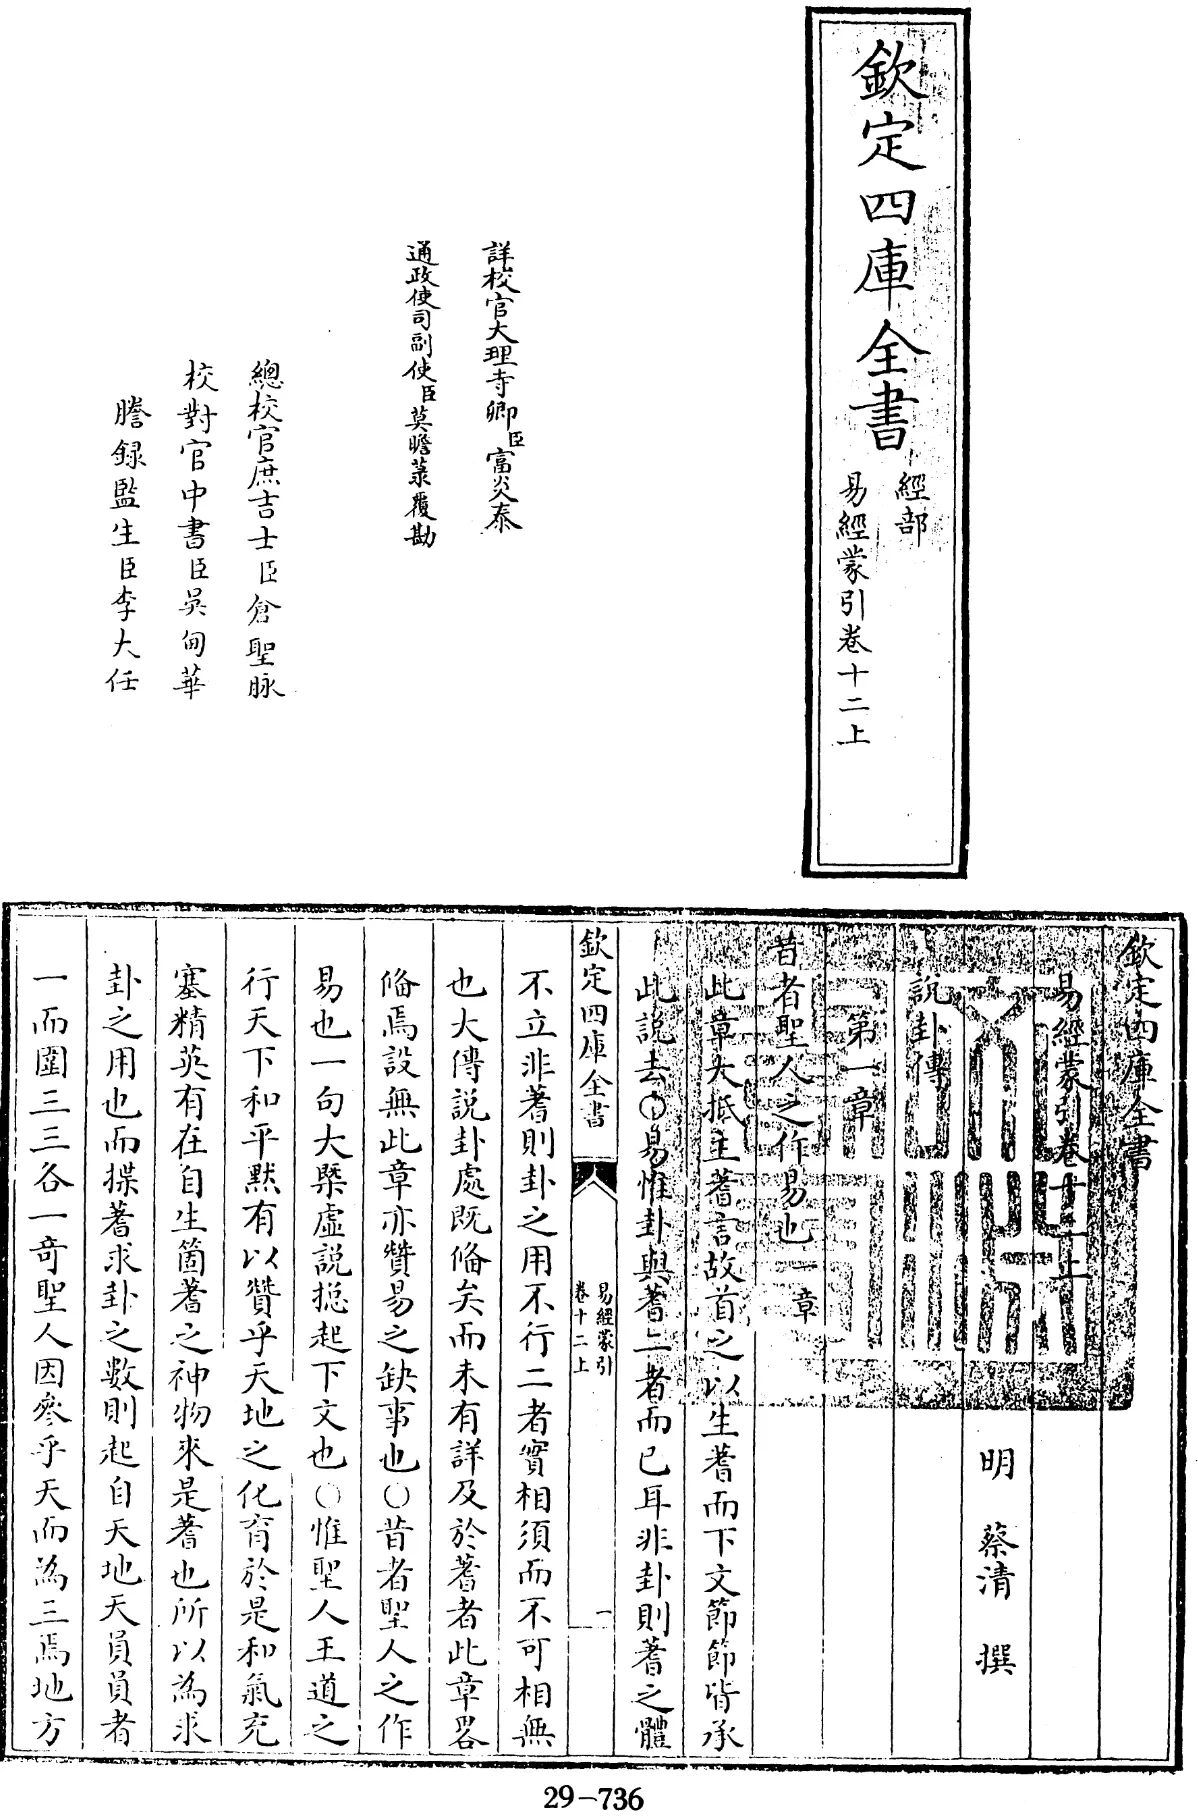 欽定四庫全書
經部
易經蒙引卷十二上
詳校官大理寺卿臣富炎泰
通政使司副使臣莫瞻菉覆勘
總校官庶吉士臣倉聖脉
校對官中書臣吳甸華
謄録監生臣李大任
欽定四庫全書
易經蒙引卷十二上
明 蔡清 撰
說卦傳
第一章
昔者聖人之作易也一章
此章大抵主蓍言故首之以生蓍而下文節節皆承
此説去○易惟卦與蓍二者而已耳非卦則蓍之體
欽定四庫全書
易經蒙引
卷十二上
一
不立非蓍則卦之用不行二者實相須而不可相無
也大傳説卦處既俻矣而未有詳及於蓍者此章畧
俻焉設無此章亦贊易之缺事也○昔者聖人之作
易也一句大槩虛説搃起下文也○惟聖人王道之
行天下和平默有以贊乎天地之化育於是和氣充
塞精英有在自生箇蓍之神物來是蓍也所以為求
卦之用也而揲蓍求卦之數則起自天地天員員者
一而圍三三各一奇聖人因參乎天而為三焉地方
29-736